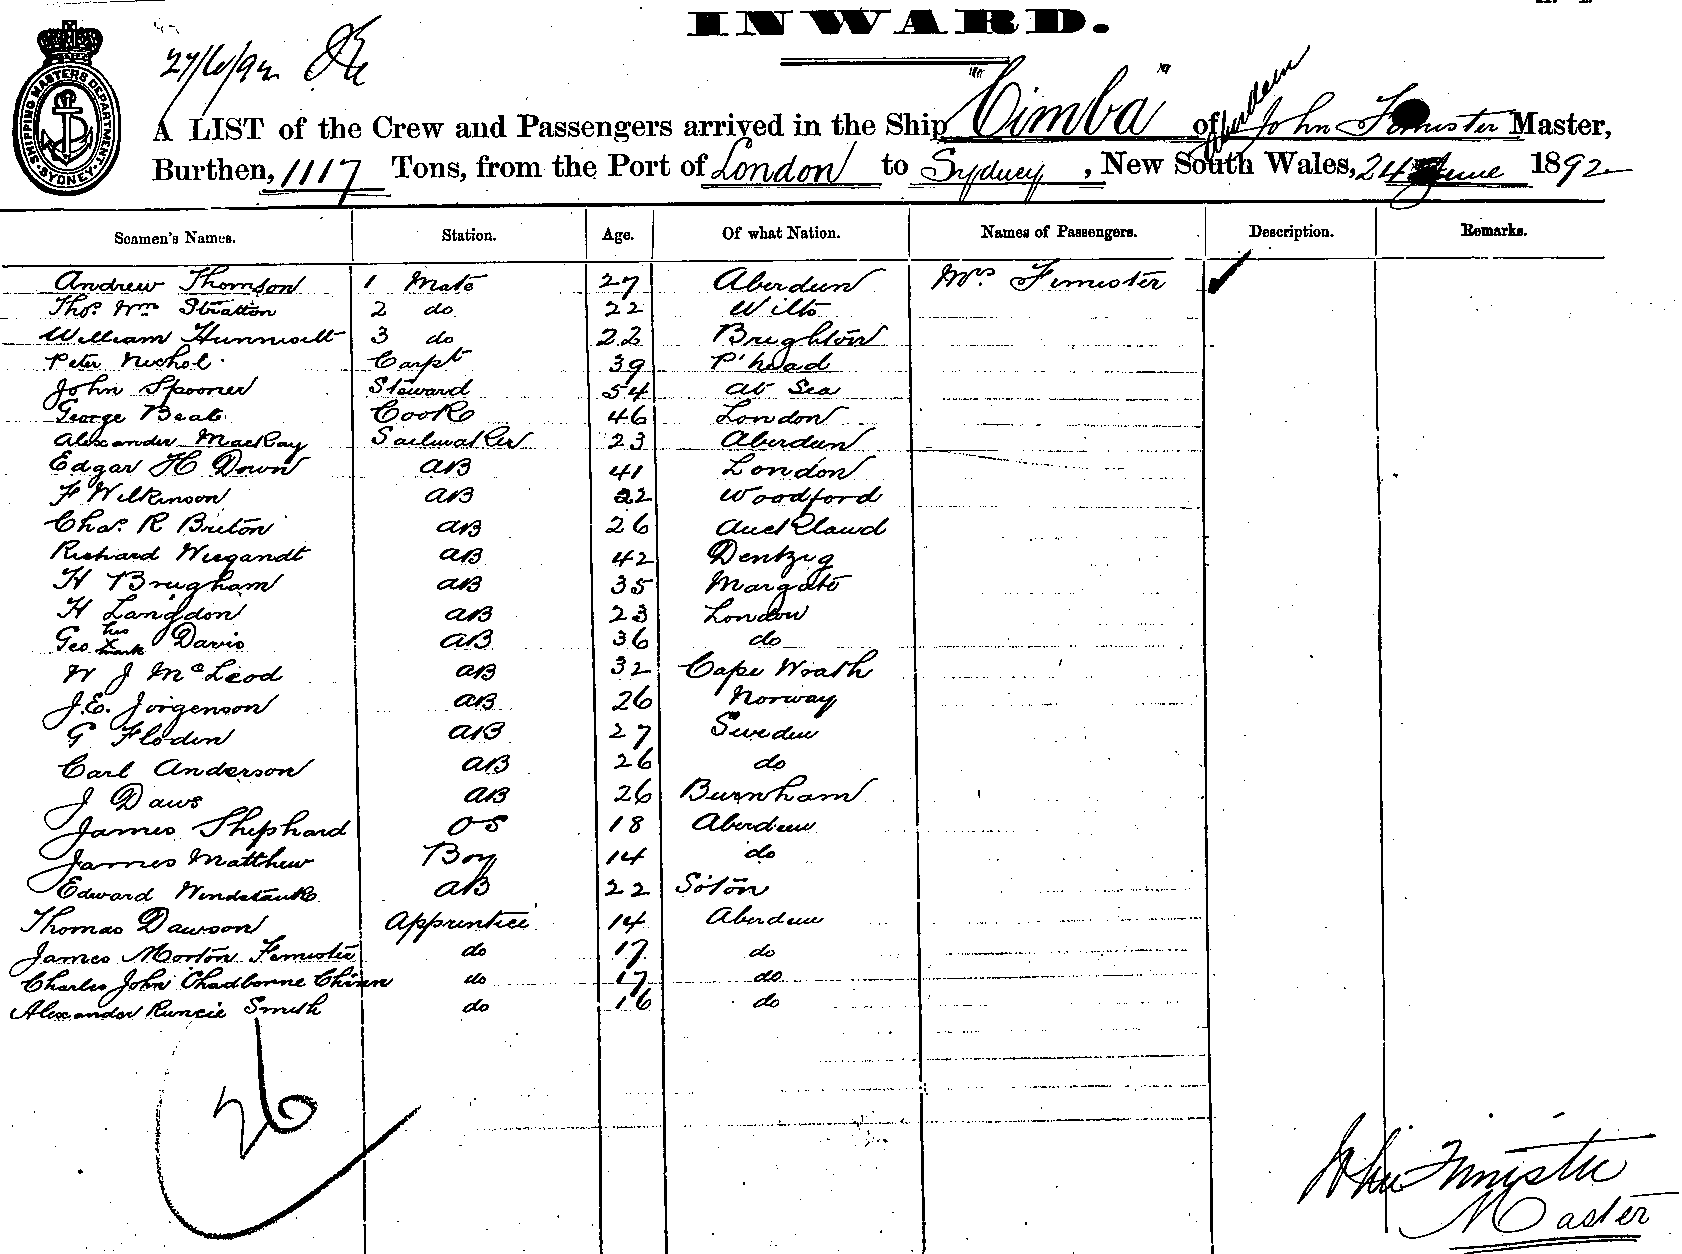 INWARD.
27/6/92
SHIPPING MASTERS DEPARTMENT SYDNEY
A LIST of the Crew and Passengers arrived in the Ship "Cimba" of Aberdeen John Femister Master,
Burthen, 1117 Tons, from the Port of London to Sydney, New South Wales, 24 June 1892
Seamen's Names. Station. Age. Of what Nation. Names of Passengers. Description. Remarks.
Andrew Thomson 1 Mate 27 Aberdeen Mrs. Femister ✓
Thos. Wm Stratton 2 do 22 Wilts
William Hunniwilt 3 do 22 Brighton
Peter Nichol Carpt 39 P'head
John Spooner Steward 54 at Sea
George Beats Cook 46 London
Alexander MacKay Sailmaker 23 Aberdeen
Edgar H Down AB 41 London
F Wilkinson AB 22 Woodford
Chas. R Briton AB 26 Auckland
Richard Wiegandt AB 42 Dentzig
H Brugham AB 35 Margate
H Langdon AB 23 London
Geo his x mark Davis AB 36 do
W J McLeod AB 32 Cape Wrath
J.E. Jorgenson AB 26 Norway
G Floden AB 27 Sweden
Carl Anderson AB 26 do
J Daws AB 26 Burnham
James Shephard OS 18 Aberdeen
James Matthew Boy 14 do
Edward Windebank AB 22 Soton
Thomas Dawson Apprentice 14 Aberdeen
James Morton Femister do 17 do
Charles John Chadborne Chinn do 17 do
Alexander Runcie Smith do 16 do
26
John Femister
Master